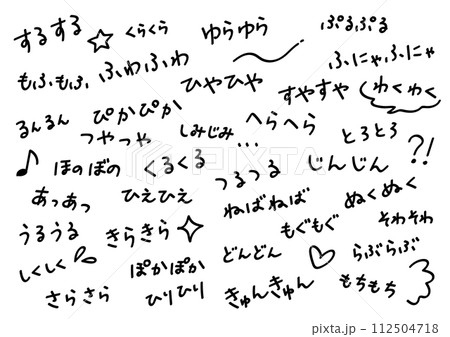 するする
くらくら
ゆらゆら
ぷるぷる
もふもふ
ふわふわ
ふにゃふにゃ
ひやひや
すやすや
わくわく
るんるん
ぴかぴか
つやつや
しみじみ
へらへら
とろとろ
...
?!
ほのぼの
くるくる
つるつる
じんじん
あつあつ
ひえひえ
ねばねば
ぬくぬく
うるうる
きらきら
もぐもぐ
そわそわ
しくしく
ぽかぽか
どんどん
らぶらぶ
さらさら
ひりひり
きゅんきゅん
もちもち
PIXTA
pixta.jp - 112504718